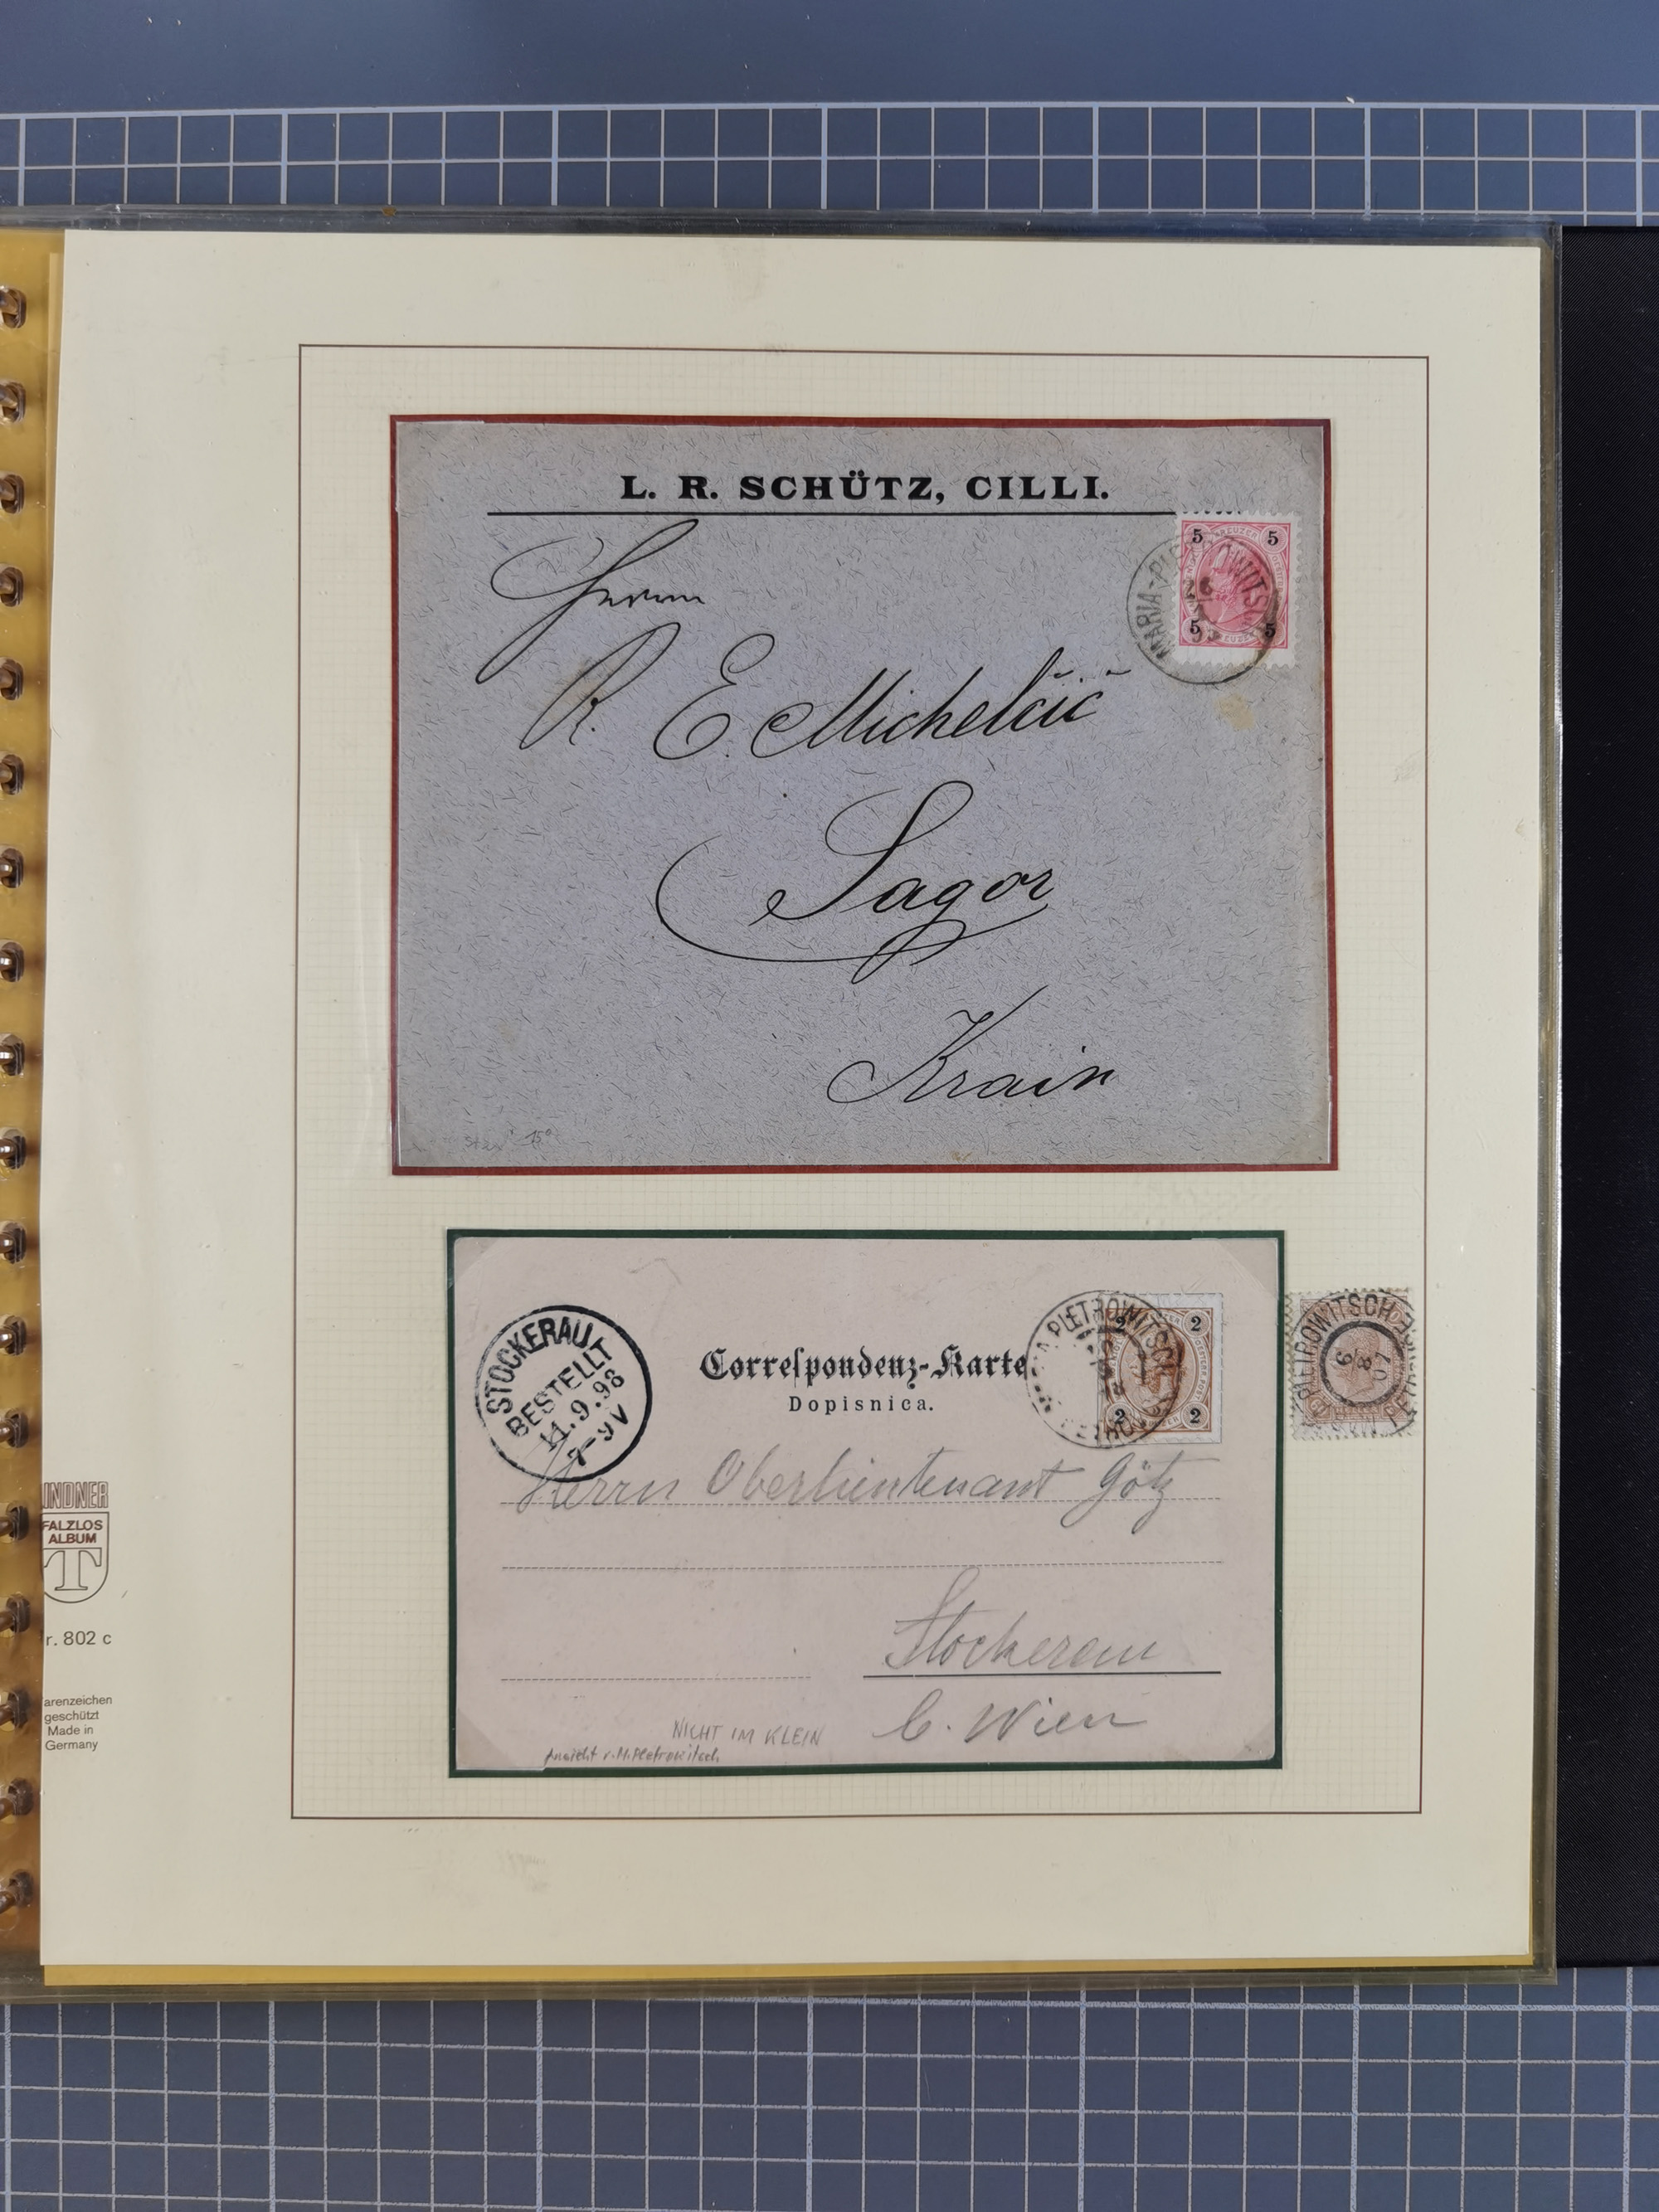 L. R. SCHÜTZ, CILLI.
5 5
5 5
Herrn
R. E. Michelčič
Sagor
Krain
STOCKERAU
BESTELLT
11.9.98
7-9V
Correspondenz-Karte
Dopisnica.
PLETROWITSCH
2 2
2 2
PLETROWITSCH
9
8
07
Herrn Oberlieutenant Götz
Stockerau
b. Wien
NICHT IM KLEIN
Ansicht v. M. Pletrowitsch
LINDNER
FALZLOS
ALBUM
T
r. 802 c
arenzeichen
geschützt
Made in
Germany